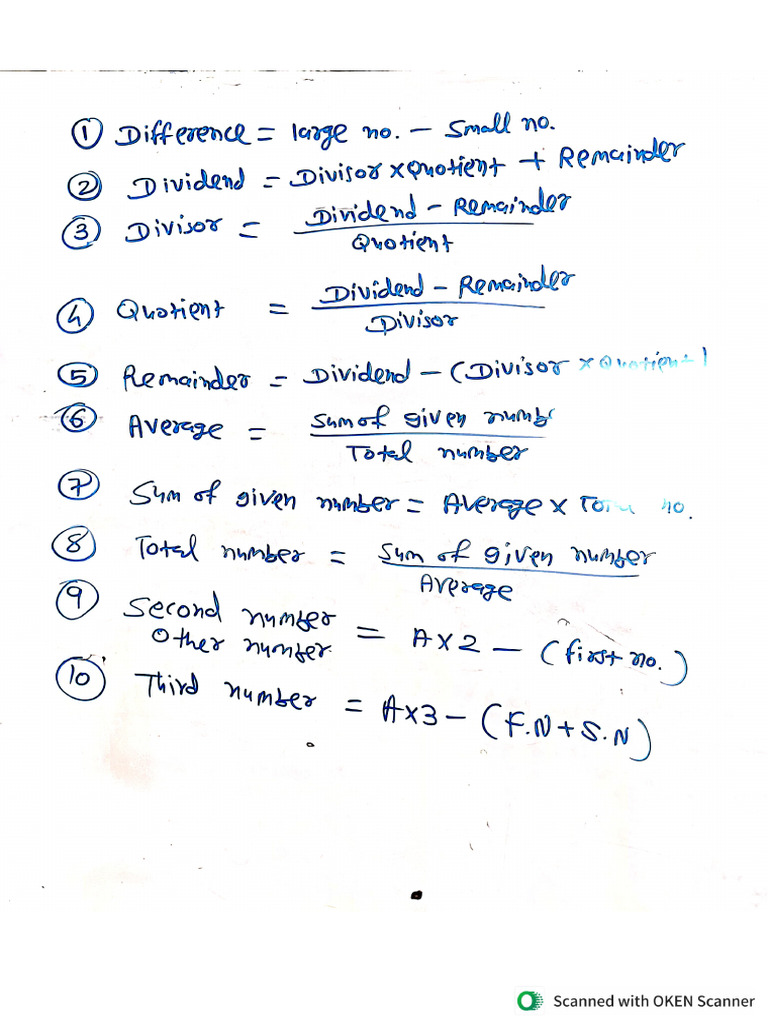 ① Difference = large no. – small no.
② Dividend = Divisor × Quotient + Remainder
③ Divisor = Dividend – Remainder
Quotient
④ Quotient = Dividend – Remainder
Divisor
⑤ Remainder = Dividend – (Divisor × Quotient)
⑥ Average = Sum of given numb
Total number
⑦ Sum of given number = Average × no.
⑧ Total number = Sum of given number
Average
⑨ Second number
Other number = A×2 – (first no.)
⑩ Third number = A×3 – (F.N + S.N)
Scanned with OKEN Scanner